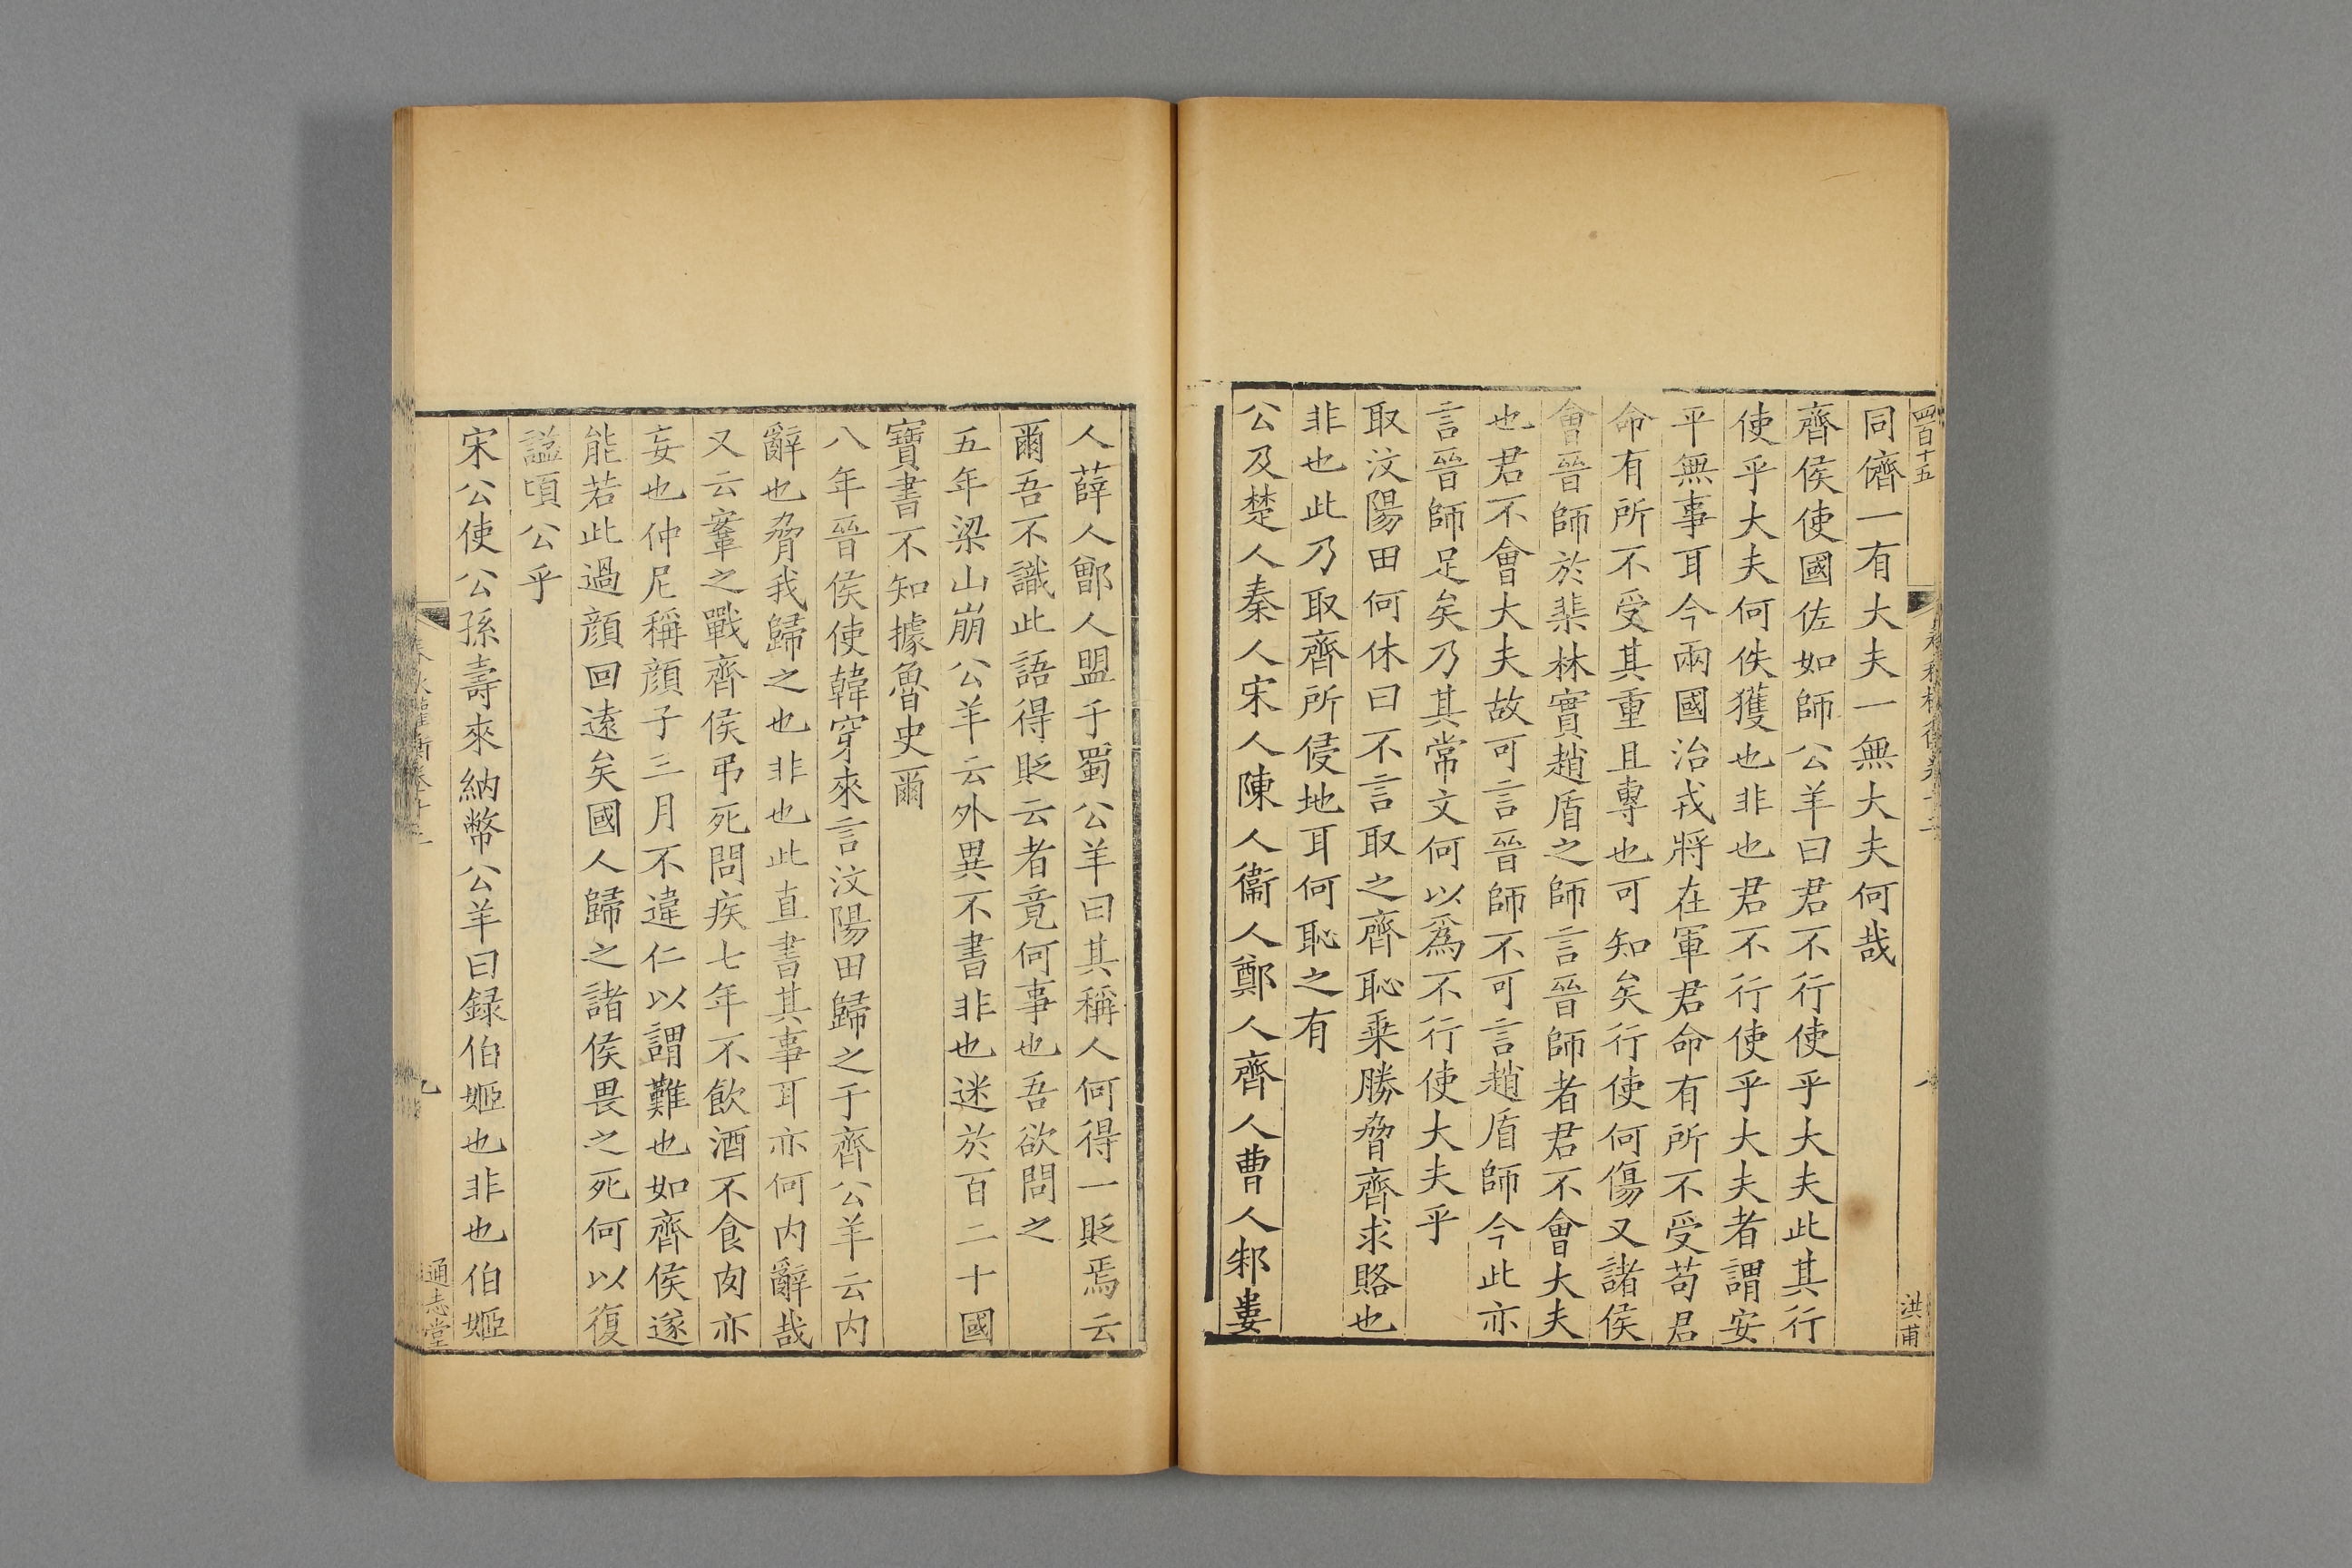 四百十五
洪甫
同儕一有大夫一無大夫何哉
齊侯使國佐如師公羊曰君不行使乎大夫此其行
使乎大夫何佚獲也非也君不行使乎大夫者謂安
平無事耳今兩國治戎將在軍君命有所不受苟君
命有所不受其重且專也可知矣行使何傷又諸侯
會晉師於棐林實趙盾之師言晉師者君不會大夫
也君不會大夫故可言晉師不可言趙盾師今此亦
言晉師足矣乃其常文何以爲不行使大夫乎
取汶陽田何休曰不言取之齊恥乗勝脅齊求賂也
非也此乃取齊所侵地耳何恥之有
公及楚人秦人宋人陳人衞人鄭人齊人曹人邾婁
人薛人鄫人盟于蜀公羊曰其稱人何得一貶焉云
爾吾不識此語得貶云者竟何事也吾欲問之
五年梁山崩公羊云外異不書非也迷於百二十國
寶書不知據魯史爾
八年晉侯使韓穿來言汶陽田歸之于齊公羊云内
辭也脅我歸之也非也此直書其事耳亦何内辭哉
又云鞌之戰齊侯弔死問疾七年不飲酒不食肉亦
妄也仲尼稱顔子三月不違仁以謂難也如齊侯遂
能若此過顔回逺矣國人歸之諸侯畏之死何以復
謚頃公乎
宋公使公孫壽來納幣公羊曰録伯姬也非也伯姬
春秋權衡卷十二
九
通志堂